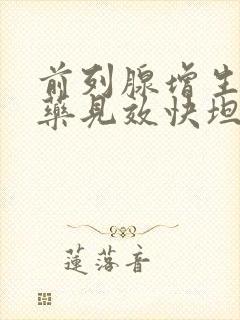 前列腺增生
藥見效快坦
蓮落音